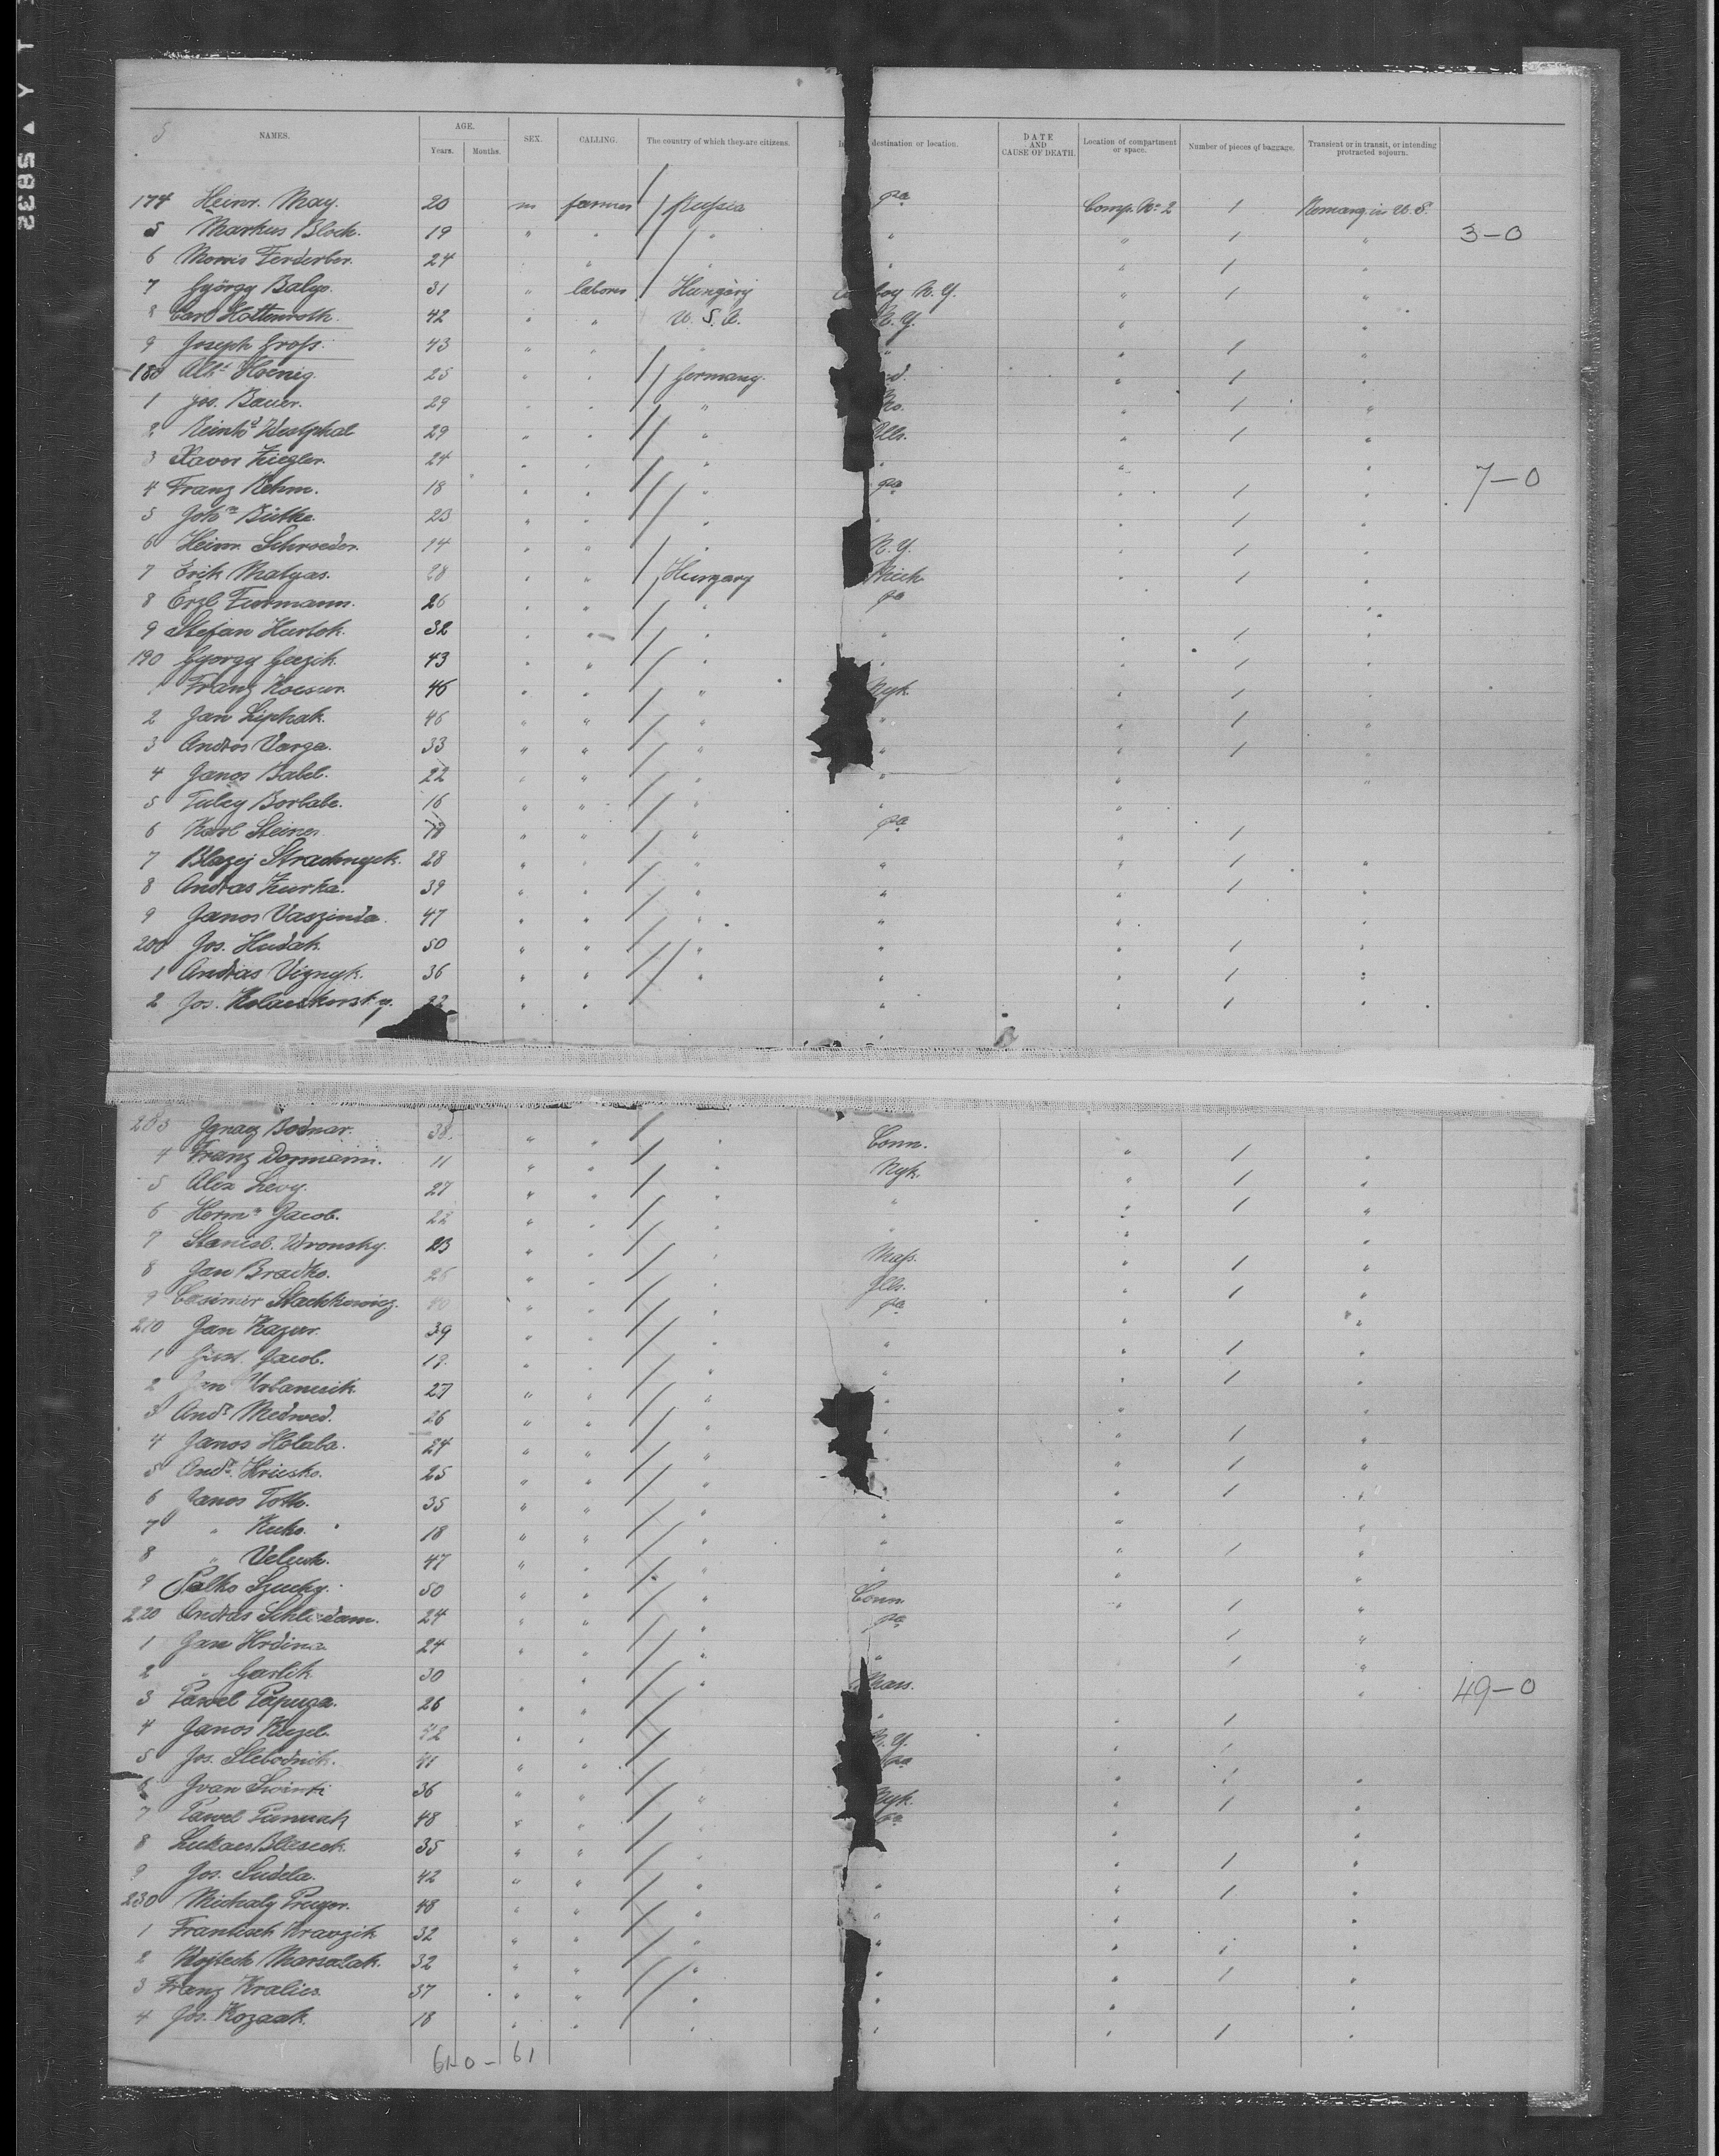 T Y ▲ 5832
5
NAMES. AGE. Years. Months. SEX. CALLING. The country of which they are citizens. destination or location. DATE AND CAUSE OF DEATH. Location of compartment or space. Number of pieces of baggage. Transient or in transit, or intending protracted sojourn.
174 Heinr. May. 20 m farmer Russia pa Comp. No. 2 1 Remang. in U.S.
5 Markus Block. 19 " " " " " 1 " 3-0
6 Morris Ferderber. 24 " " " " " 1 "
7 György Balyo. 31 " laborer Hungary N.Y. " 1 "
8 Carl Hottenroth. 42 " " U.S.A. N.Y. " "
9 Joseph Gross. 43 " " " " " 1 "
180 Albt. Hoenig. 25 " " Germany. " 1 "
1 Jos. Bauer. 29 " " " " 1 "
2 Reinhd. Westphal 29 " " " Ills. " 1 "
3 Xaver Ziegler. 24 " " " " " "
4 Franz Rehm. 18 " " " pa " 1 " 7-0
5 John Bütke. 23 " " " " 1 "
6 Heinr. Schroeder. 14 " " " N.Y. " 1 "
7 Erik Matyas. 28 " " Hungary Mich. " 1 "
8 Erzb. Furmann. 26 " " " pa "
9 Stefan Hurtok. 32 " " " " " 1 "
190 Gyorgy Geczik. 43 " " " " " 1 "
1 Franz Kocsur. 46 " " " Nyk. " 1 "
2 Jan Liphak. 46 " " " " " 1 "
3 Andros Varga. 33 " " " " " 1 "
4 Janos Babel. 22 " " " " " "
5 Tuley Borbale. 16 " " " " "
6 Karl Steiner. " " " pa " 1
7 Blazej Strachnyck. 28 " " " " " 1 "
8 Andras Zurka. 39 " " " " " 1 "
9 Janos Vaszinda. 47 " " " " " "
200 Jos. Hudak. 50 " " " " " 1 "
1 Andras Vignyk. 36 " " " " " 1 "
2 Jos. Kolaczkowsky. 22 " " " " 1 "
203 Ignacz Bodnar. 38. " " " Conn. " 1 "
4 Franz Dormann. 11 " " " Nyk. " 1 "
5 Alex Levy. 27 " " " " " 1 "
6 Hermn Jacob. 22 " " " " " "
7 Stanisl. Wronsky. 23 " " " Mass. " 1 "
8 Jan Bradko. 26 " " " Ills. " 1 "
9 Casimir Stachkewicz. 40 " " " pa " "
210 Jan Kazur. 39 " " " " " 1 "
1 Jacob. 19. " " " " " 1 "
2 Jan Urbancsik 27 " " " " " "
3 Ands Medwed. 26 " " " " " 1 "
4 Janos Holaba. 24 " " " " " 1 "
5 Ands. Hricsko. 25 " " " " " 1 "
6 Janos Toth. 35 " " " " " "
7 " Kuko. 18 " " " " " 1 "
8 " Velusk. 47 " " " " " "
9 Palko Szucky. 50 " " " Conn. " 1 "
220 Andras Schlesdam. 24 " " " pa 1 "
1 Jan Hrdina 24 " " " " 1 "
2 " Garlik 30 " " Mass. "
3 Pawel Papuga. 26 " " " 1 49-0
4 Janos Kuzel. 42 " " N.Y. " 1
5 Jos. Slebodnik. 41 " " pa " 1 "
6 Ivan Swinti 36 " " " Nyk. " 1 "
7 Pawel Punicak 48 " " pa " "
8 Lukacs Blascok. 35 " " " " 1 "
9 Jos. Sudela. 42 " " " " " 1 "
230 Michaly Pruzor. 48 " " " " " "
1 Frantisek Kravzik 32 " " " " " 1 "
2 Wojtech Marsalak. 32 " " " " " 1 "
3 Franz Kralics 37 " " " " " "
4 Jos. Kozaak. 18 " " " " " 1 "
61-0-61